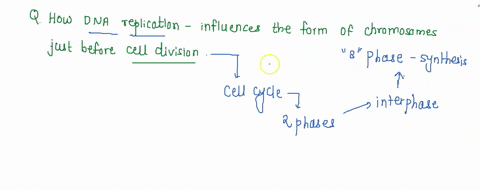 Q. How DNA replication - influences the form of chromosomes
just before cell division.
"S" phase - synthesis
cell cycle
interphase
2 phases